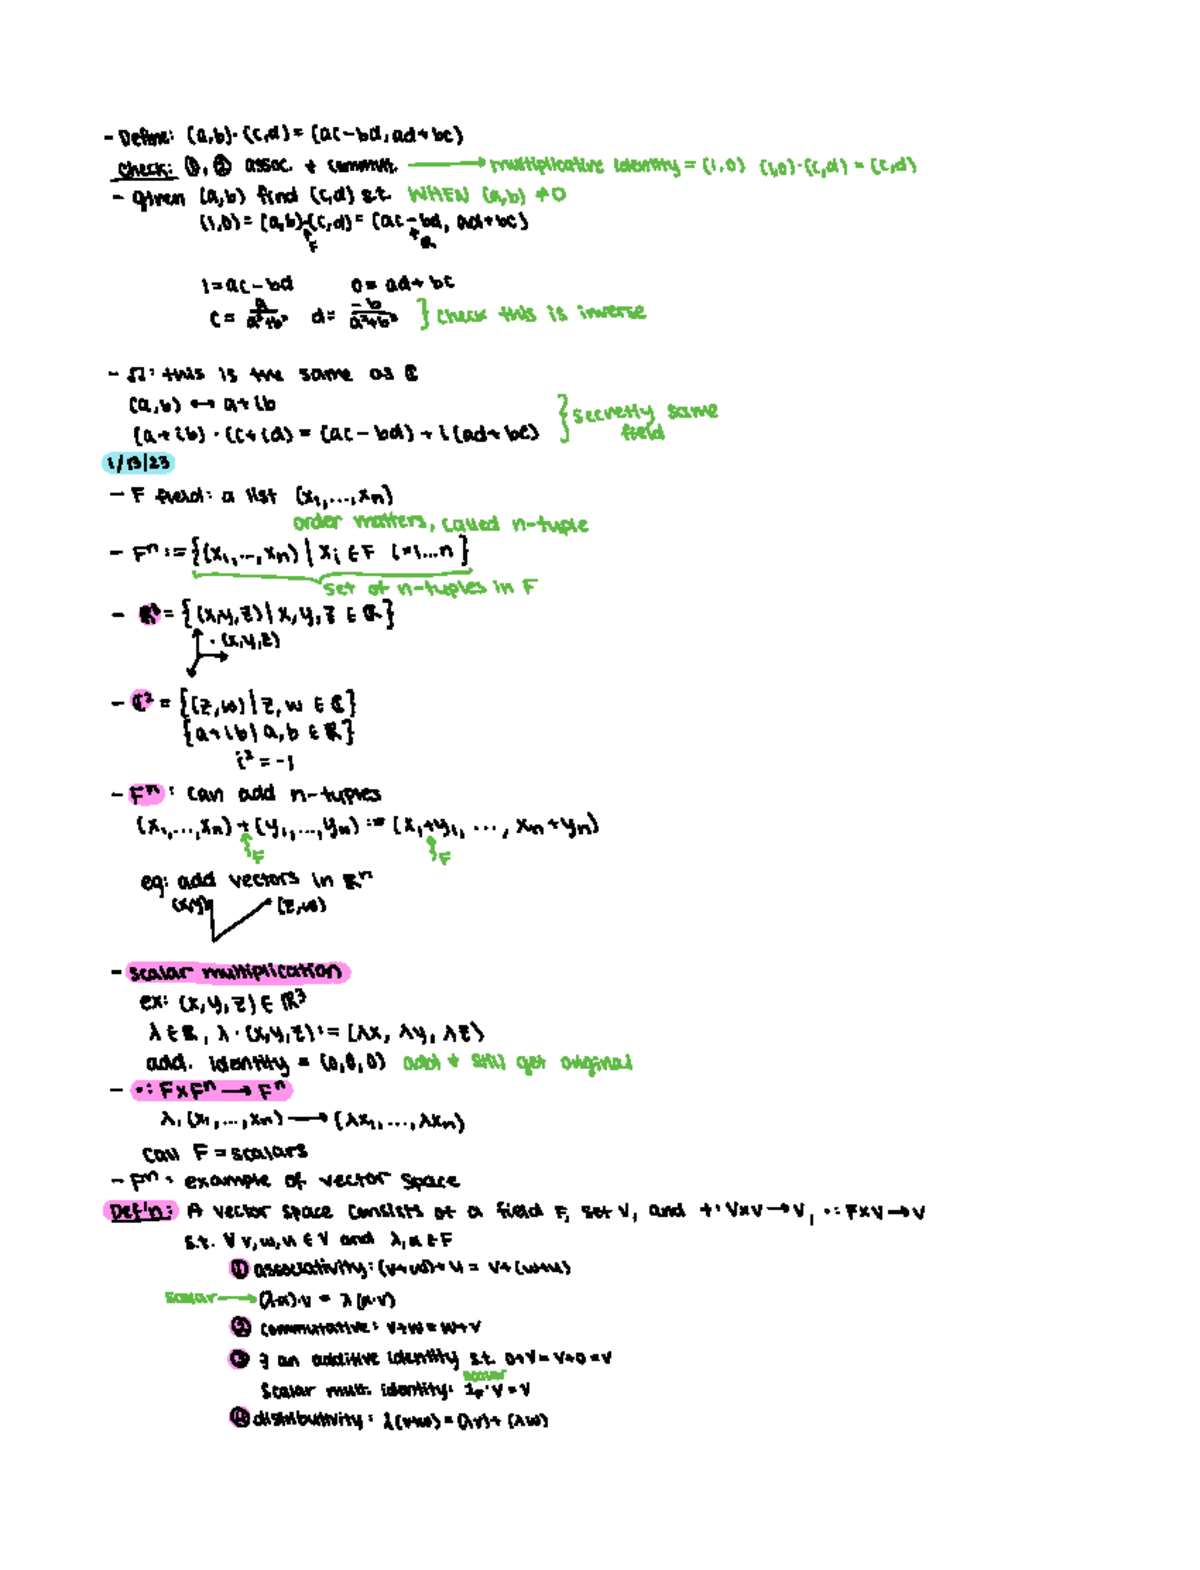 - Define: (a,b)·(c,d) = (ac-bd, ad+bc)
Check: ①, ② assoc. + commut. → multiplicative identity = (1,0) (1,0)·(c,d) = (c,d)
- given (a,b) find (c,d) s.t. WHEN (a,b) ≠ 0
(1,0) = (a,b)·(c,d) = (ac-bd, ad+bc)
F R
1 = ac-bd 0 = ad+bc
c = a/(a²+b²) d = -b/(a²+b²) } check this is inverse
- Ω: this is the same as ℂ
(a,b) ↔ a+ib
(a+ib)·(c+id) = (ac-bd)+i(ad+bc) } secretly same field
1/13/23
- F field: a list (x₁,...,xₙ)
order matters, called n-tuple
- Fⁿ := {(x₁,...,xₙ) | xᵢ ∈ F i=1...n}
set of n-tuples in F
- ℝ³ = {(x,y,z) | x,y,z ∈ ℝ}
· (x,y,z)
- ℂ² = {(z,w) | z,w ∈ ℂ}
{a+ib | a,b ∈ ℝ}
i² = -1
- Fⁿ: can add n-tuples
(x₁,...,xₙ) + (y₁,...,yₙ) := (x₁+y₁, ..., xₙ+yₙ)
F F
eg: add vectors in ℝⁿ
(x,y) (z,w)
- scalar multiplication
ex: (x,y,z) ∈ ℝ³
λ ∈ ℝ, λ·(x,y,z) := (λx, λy, λz)
add. identity = (0,0,0) add + still get original
- ·: F×Fⁿ → Fⁿ
λ, (x₁,...,xₙ) → (λx₁,...,λxₙ)
call F = scalars
- Fⁿ: example of vector space
Def'n: A vector space consists of a field F, set V, and +: V×V → V, ·: F×V → V
s.t. ∀ v,w,u ∈ V and λ,α ∈ F
① associativity: (v+w)+u = v+(w+u)
scalar → (λ·α)·v = λ(α·v)
② commutative: v+w = w+v
③ ∃ an additive identity s.t. 0+v = v+0 = v
scalar
Scalar mult. identity: 1_F·v = v
④ distributivity: λ(v+w) = (λv)+(λw)